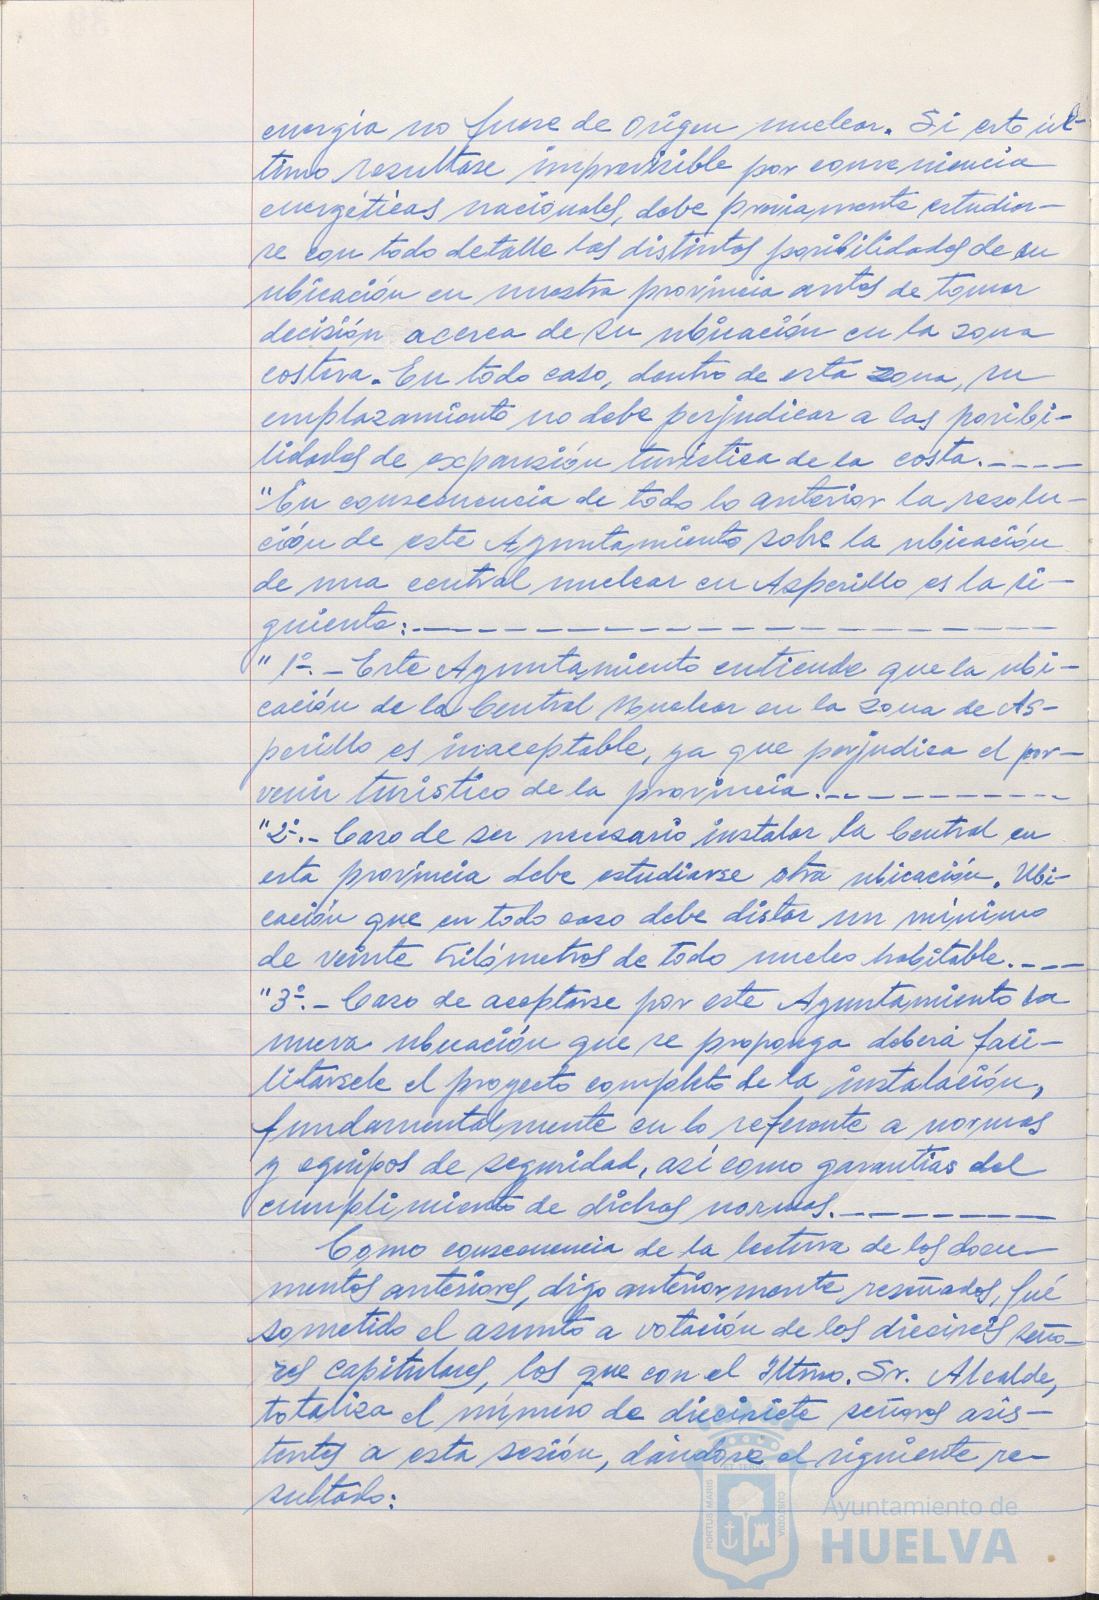 energía no fuese de origen nuclear. Si esto úl-
timo resultase imprevisible por conveniencia
energéticas nacionales, debe previamente estudiar-
se con todo detalle las distintas posibilidades de su
ubicación en nuestra provincia antes de tomar
decisión acerca de su ubicación en la zona
costera. En todo caso, dentro de esta zona, su
emplazamiento no debe perjudicar a las posibi-
lidades de expansión turística de la costa.----
"En consecuencia de todo lo anterior la resolu-
ción de este Ayuntamiento sobre la ubicación
de una central nuclear en Asperillo es la si-
guiente:-------------------
"1º.- Este Ayuntamiento entiende que la ubi-
cación de la Central Nuclear en la zona de As-
perillo es inaceptable, ya que perjudica el por-
venir turístico de la provincia.----------
"2º.- Caso de ser necesario instalar la Central en
esta provincia debe estudiarse otra ubicación. Ubi-
cación que en todo caso debe distar un mínimo
de veinte kilómetros de todo nucleo habitable.---
"3º.- Caso de aceptarse por este Ayuntamiento la
nueva ubicación que se proponga deberá faci-
litarsele el proyecto completo de la instalación,
fundamentalmente en lo referente a normas
y equipos de seguridad, así como garantías del
cumplimiento de dichas normas.--------
Como consecuencia de la lectura de los docu-
mentos anteriores, digo anteriormente reseñados, fué
sometido el asunto a votación de los dieciseis seño-
res capitulares, los que con el Iltmo. Sr. Alcalde,
totaliza el número de diecisiete señores asis-
tentes a esta sesión, dándose el siguiente re-
sultado:
PORTUS MARIS
ET TERRAE
CUSTODIA
Ayuntamiento de
HUELVA